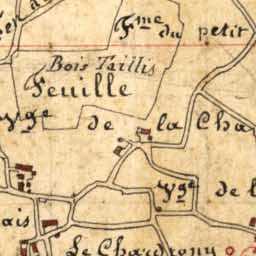 Fme du petit
Bois Taillis
Feuille
yge de la Cha
yge de l
ais
Le Chardrony